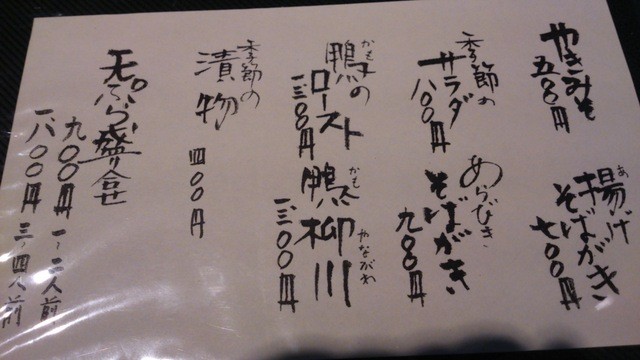 やきみそ
五〇〇円
揚げ
あ
そばがき
七〇〇円
季節の
サラダ
八〇〇円
あらびき
そばがき
九〇〇円
鴨の
かも
ロースト
一三〇〇円
鴨柳川
かも やながわ
一三〇〇円
季節の
漬物
四〇〇円
天ぷら盛り合せ
九〇〇円 一〜二人前
一八〇〇円 三〜四人前